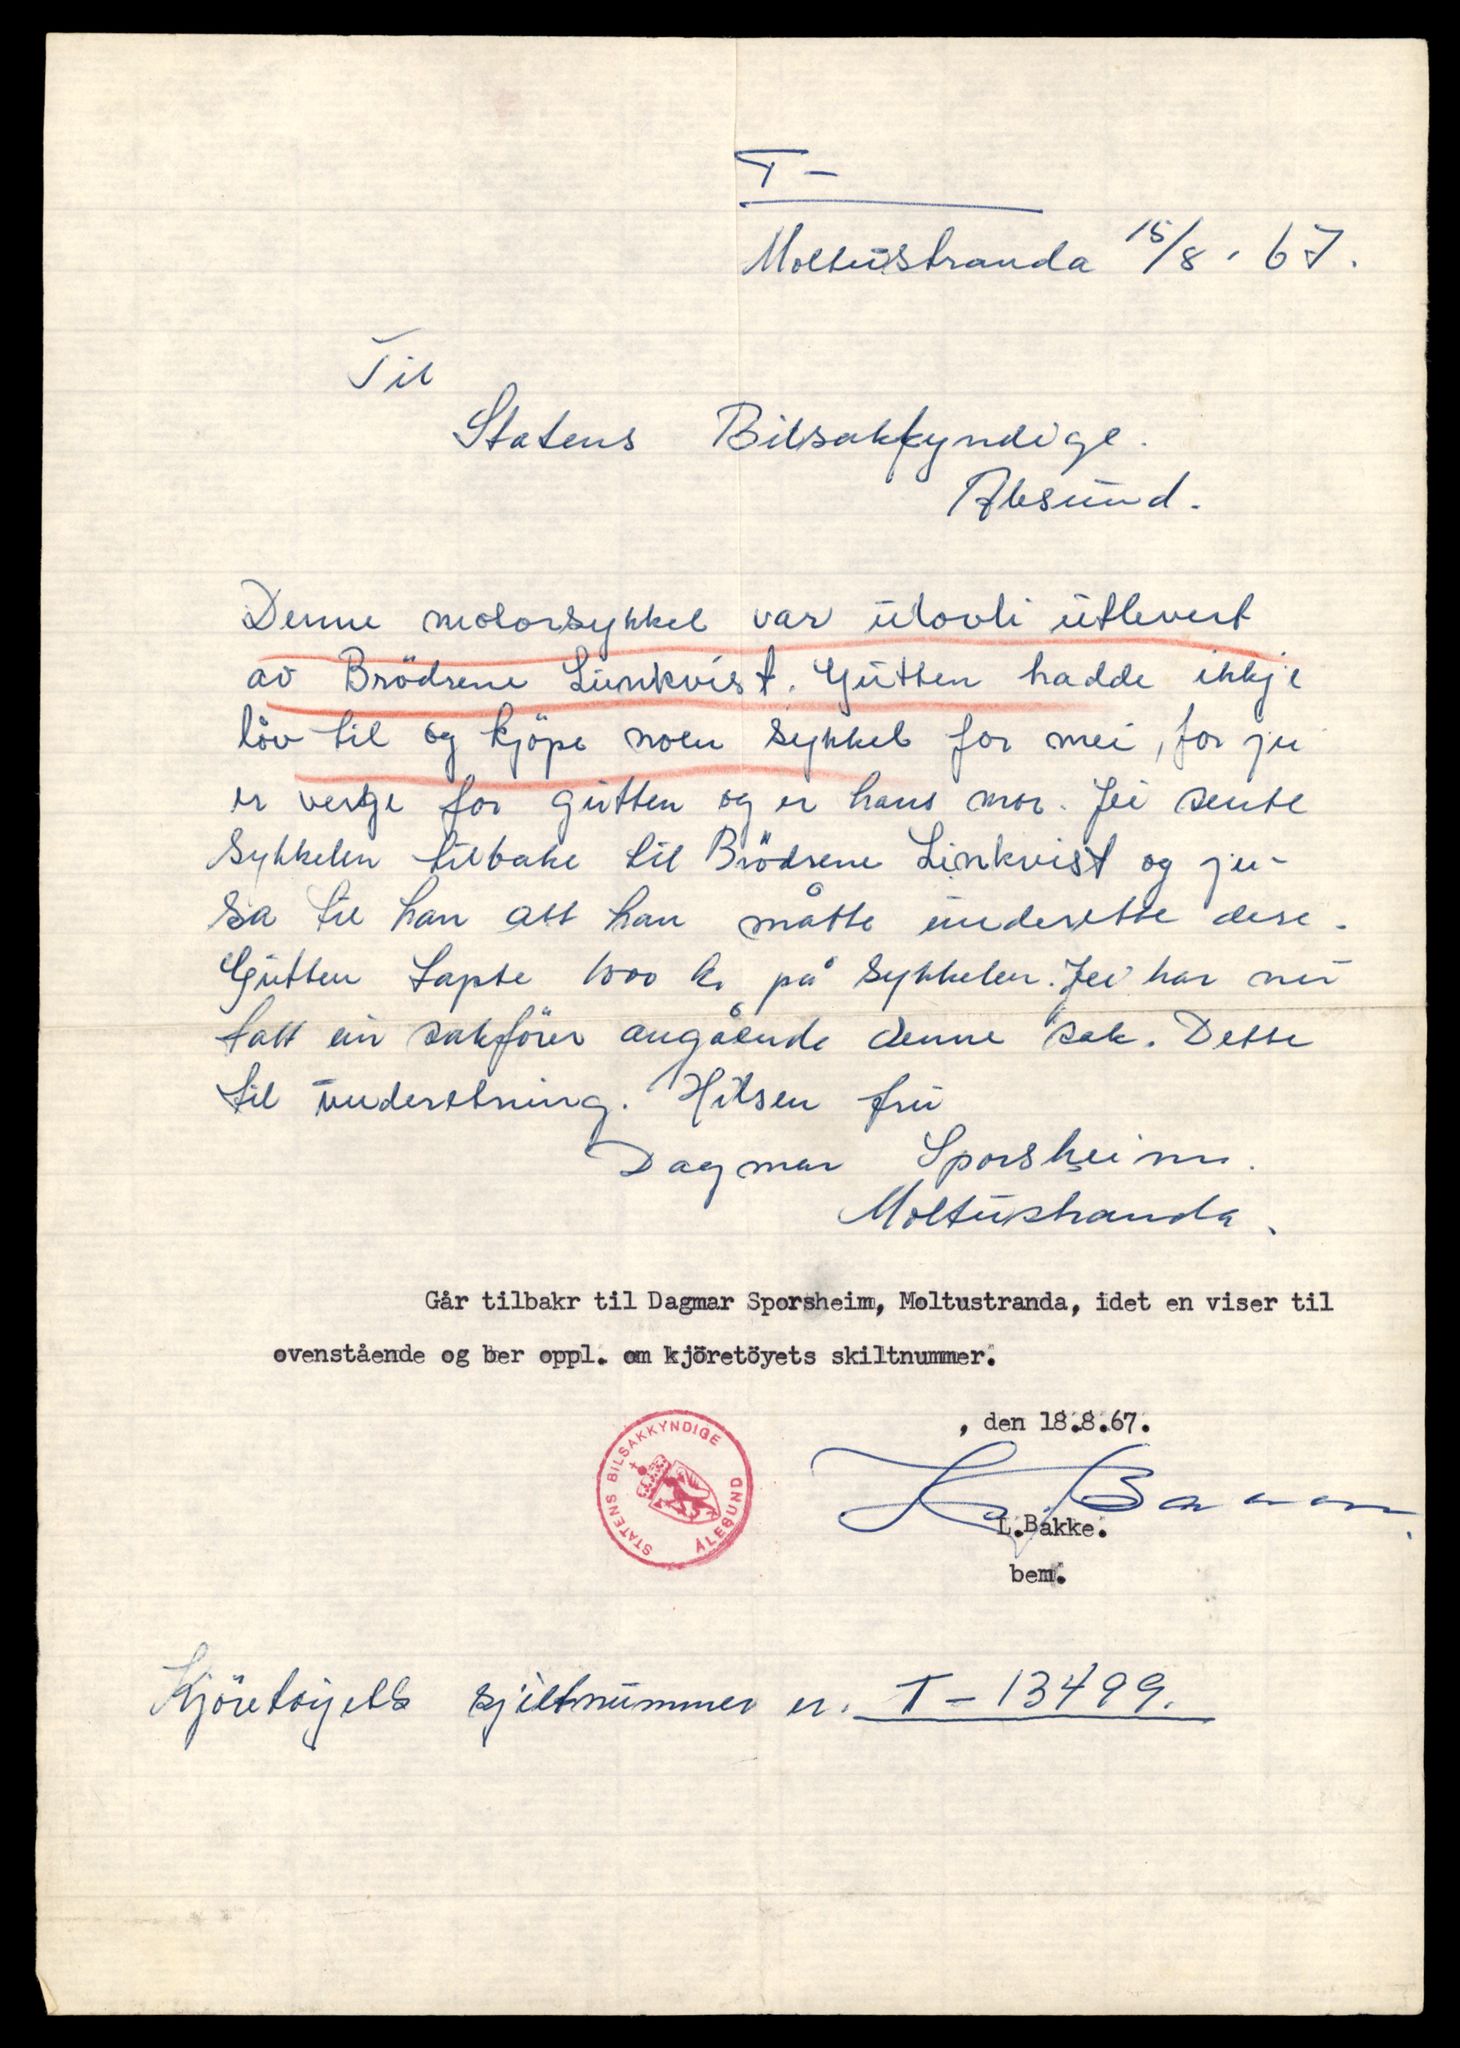 T-
Moltustranda 15/8 . 67.
Til
Statens Bilsakkyndige.
Ålesund.
Denne motorsykkel var ulovli utlevert
av Brödrene Linkvist. Gutten hadde ikkje
lov til og kjöpe noen sykkel for mei, for jei
er verge for gutten og er hans mor. Jei sente
sykkelen tilbake til Brödrene Linkvist og jei-
sa til han att han måtte underette dere.
Gutten tapte 1000 kr på sykkelen. Jei har nu
tatt ein sakförer angående denne sak. Dette
til underetning. Hilsen fru
Dagmar Sporsheim.
Moltustranda.
Går tilbakr til Dagmar Sporsheim, Moltustranda, idet en viser til
ovenstående og ber oppl. om kjöretöyets skiltnummer.
, den 18.8.67.
STATENS BILSAKKYNDIGE
ÅLESUND
L.Bakke.
bem.
Kjöretöyets sjiltnummer er. T-13499.